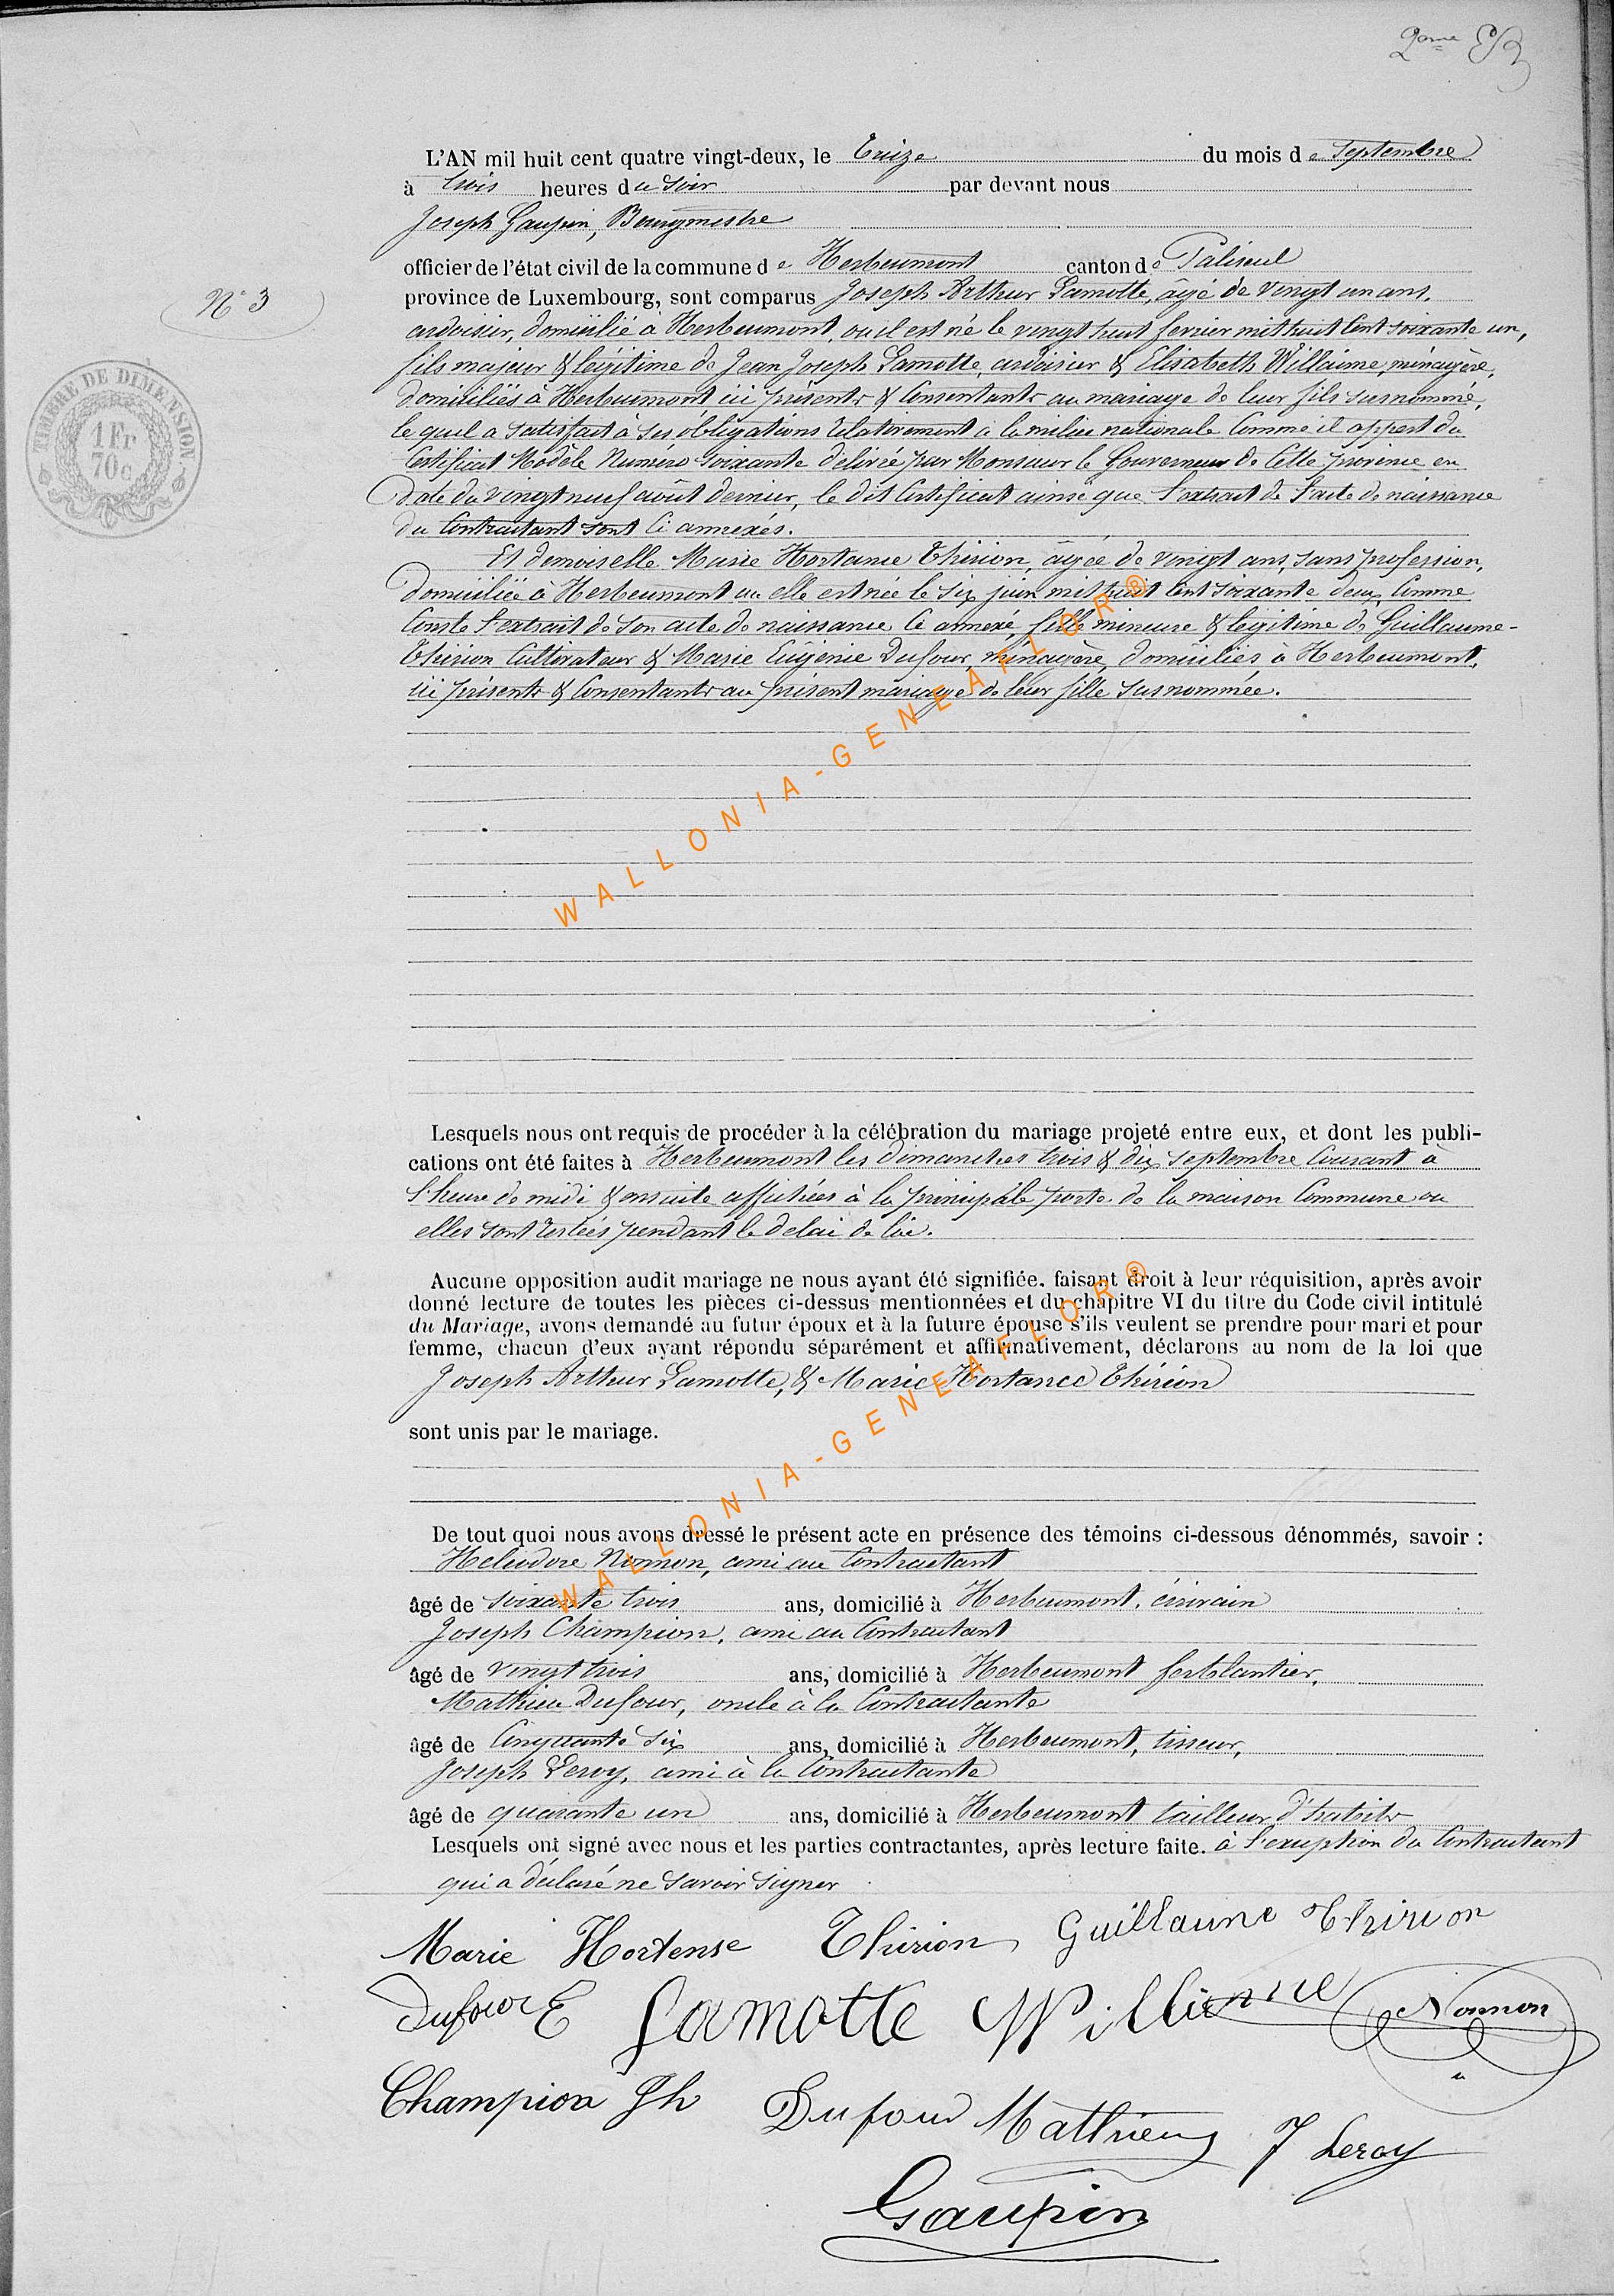 2eme
L'AN mil huit cent quatre vingt-deux, le Treize du mois de Septembre
à trois heures du Soir par devant nous
Joseph Gaupin, Bourgmestre
officier de l'état civil de la commune de Herbeumont canton de Paliseul
N° 3
province de Luxembourg, sont comparus Joseph Arthur Lamotte, âgé de vingt un ans,
ardoisier, domicilié à Herbeumont, ou il est né le vingt huit fevrier mil huit Cent soixante un,
fils majeur & légitime de Jean Joseph Lamotte, ardoisier & Elisabeth Willaime, ménagère,
domiciliés à Herbeumont ici présents & Consentants au mariage de leur fils susnommé,
le quel a satisfait à ses obligations relativement à la milice nationale Comme il appert du
Certificat Modèle Numéro soixante délivré par Monsieur le Gouverneur de Cette province en
date du vingt neuf août dernier, le dit Certificat ainsi que l'extrait de l'acte de naissance
du Contractant sont Ci annexés.
Et demoiselle Marie Hortance Thirion, âgée de vingt ans, sans profession,
domiciliée à Herbeumont ou elle est née le six juin mil huit Cent soixante deux, Comme
Conste l'extrait de son acte de naissance Ci annexé, fille mineure & légitime de Guillaume-
Thirion Cultivateur & Marie Eugenie Dufour, ménagère, domiciliés à Herbeumont,
ici présents & Consentants au présent mariage de leur fille susnommée.
TIMBRE DE DIMENSION
1 Fr
70c
WALLONIA-GENEAFLOR®
Lesquels nous ont requis de procéder à la célébration du mariage projeté entre eux, et dont les publi-
cations ont été faites à Herbeumont les dimanches trois & dix Septembre Courant à
l'heure de midi & ensuite affichées à la principale porte de la maison Commune ou
elles sont restées pendant le delai de loi.
Aucune opposition audit mariage ne nous ayant été signifiée, faisant droit à leur réquisition, après avoir
donné lecture de toutes les pièces ci-dessus mentionnées et du chapitre VI du titre du Code civil intitulé
du Mariage, avons demandé au futur époux et à la future épouse s'ils veulent se prendre pour mari et pour
femme, chacun d'eux ayant répondu séparément et affirmativement, déclarons au nom de la loi que
Joseph Arthur Lamotte, & Marie Hortance Thirion
sont unis par le mariage.
WALLONIA-GENEAFLOR®
De tout quoi nous avons dressé le présent acte en présence des témoins ci-dessous dénommés, savoir :
Heliodore Nomon, ami au Contractant
âgé de soixante trois ans, domicilié à Herbeumont, écrivain
Joseph Champion, ami au Contractant
âgé de vingt trois ans, domicilié à Herbeumont ferblantier,
Mathieu Dufour, oncle à la Contractante
âgé de Cinquante Six ans, domicilié à Herbeumont, tisseur,
Joseph Leroy, ami à la Contractante
âgé de quarante un ans, domicilié à Herbeumont tailleur d'habits
Lesquels ont signé avec nous et les parties contractantes, après lecture faite. à l'exception du Contractant
qui a déclaré ne savoir signer
Marie Hortense Thirion Guillaume Thirion
Dufour E Lamotte Nomon
Champion Jh Dufour Mathieu J Leroy
Gaupin